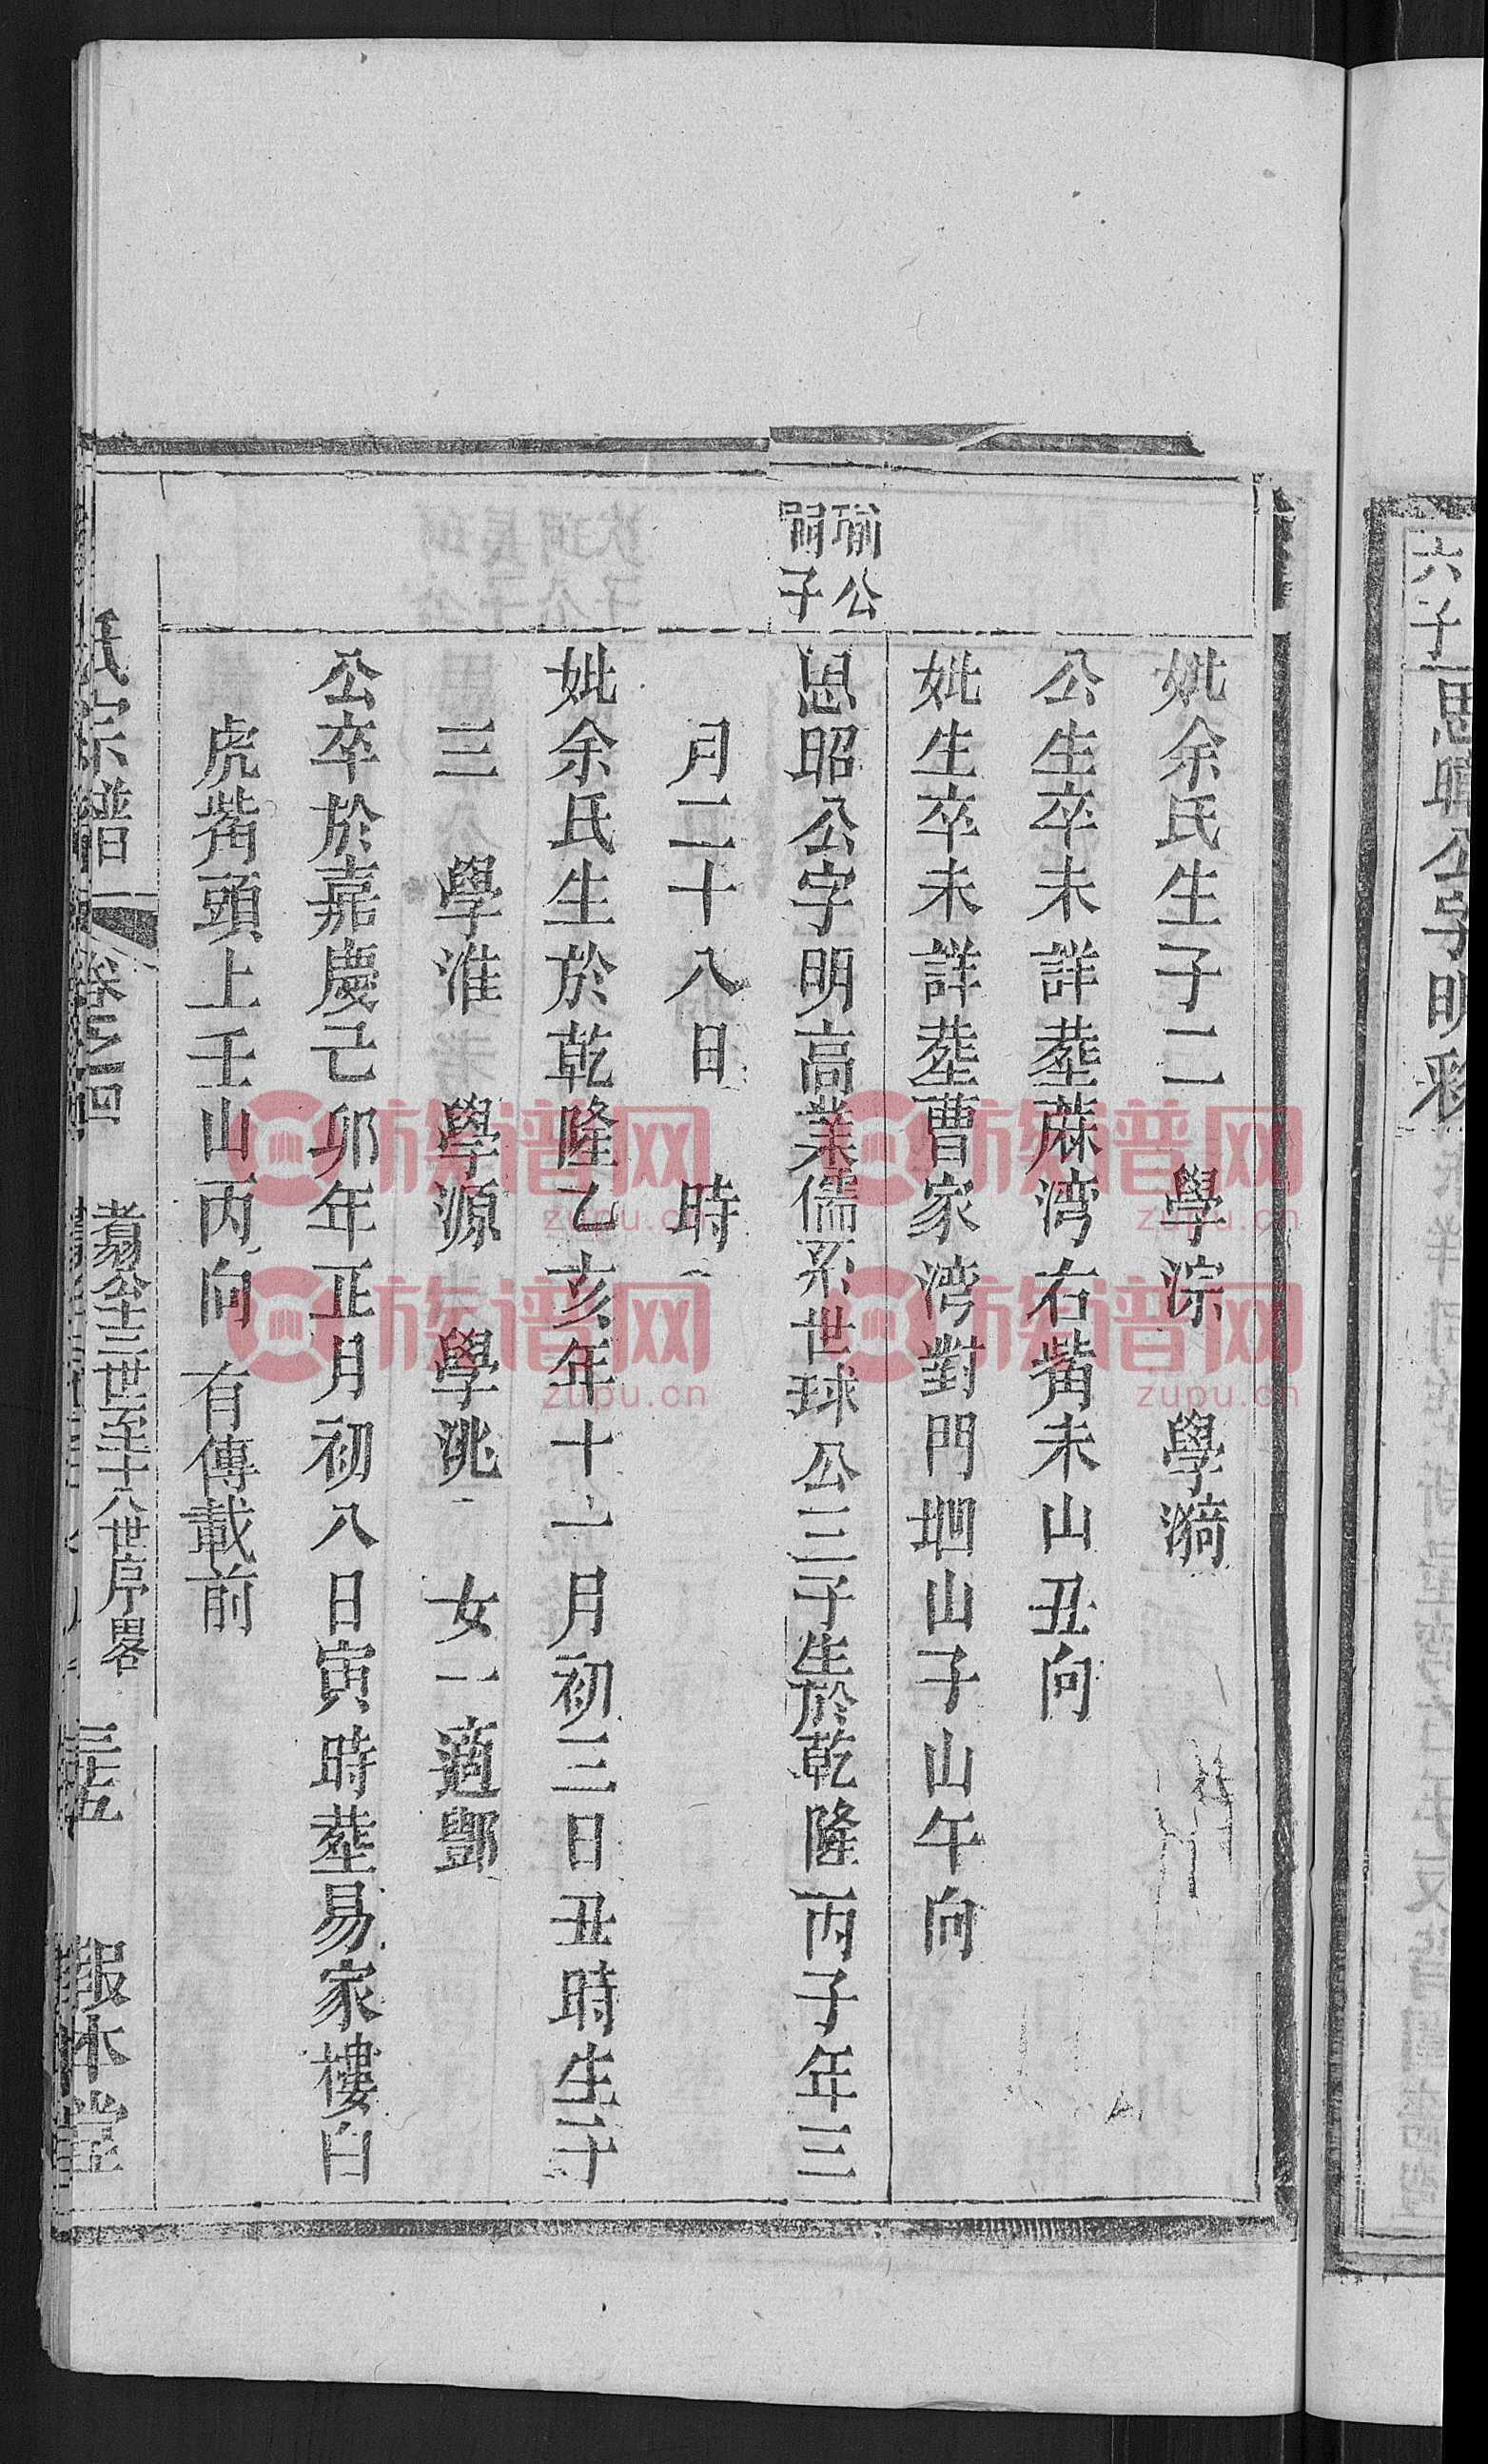 六子
思職公字明彩
妣余氏生子二 學淙 學漪
公生卒未詳塟蔴湾右嘴未山丑向
妣生卒未詳塟曹家湾對門堌山子山午向
瑜公
嗣子
思昭公字明高業儒系世球公三子生於乾隆丙子年三
月二十八日 時
妣余氏生於乾隆乙亥年十一月初三日丑時生子
三 學淮 學源 學洮 女一適鄧
公卒於嘉慶己卯年正月初八日寅時塟易家樓白
虎嘴頭上壬山丙向 有傳載前
氏宗譜
卷之四
公十三世至十八世序畧
三十五
報本堂
族谱网
zupu.cn
族谱网
zupu.cn
族谱网
zupu.cn
族谱网
zupu.cn